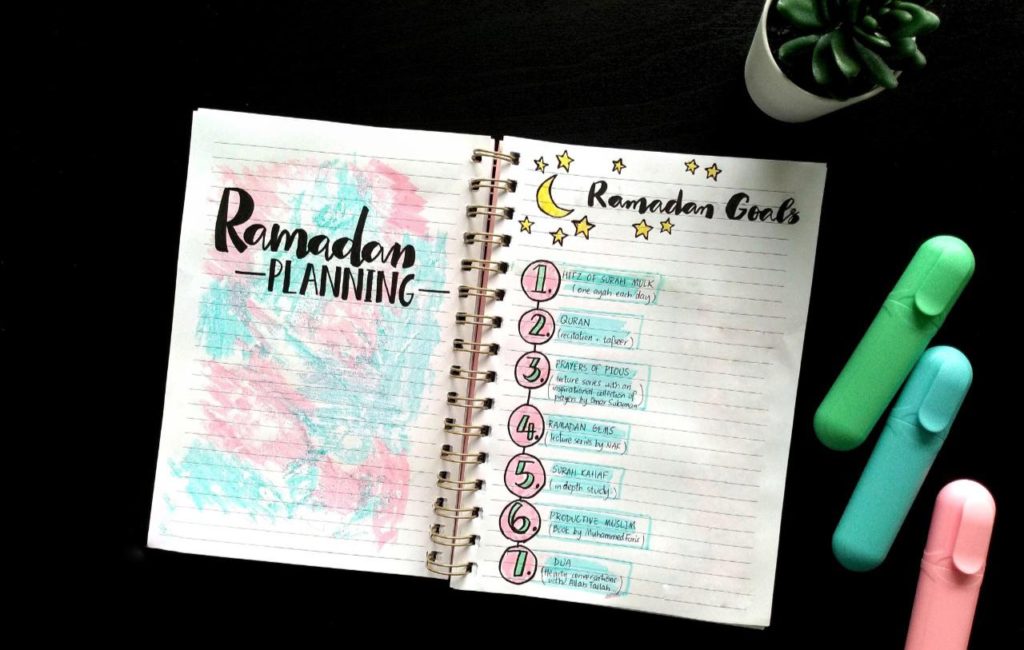 Ramadan
PLANNING
Ramadan Goals
1. HIFZ OF SURAH MULK
(one ayah each day)
2. QURAN
(recitation + tafseer)
3. PRAYERS OF PIOUS
(lecture series with an
inspirational collection of
prayers by Omar Suleiman)
4. RAMADAN GEMS
(lecture series by NAK)
5. SURAH KAHAF
(in depth study)
6. PRODUCTIVE MUSLIM
(Book by Muhammed Faris)
7. DUA
(Hearty conversations
with Allah Ta'lah)